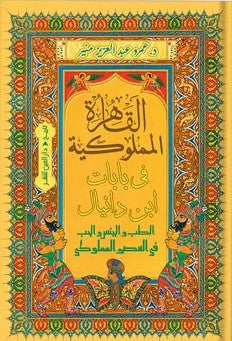 د. عمرو عبد العزيز منير
القاهرة
المملوكية
في بابات
ابن دانيال
الطب والجنس والحب
في العصر المملوكي